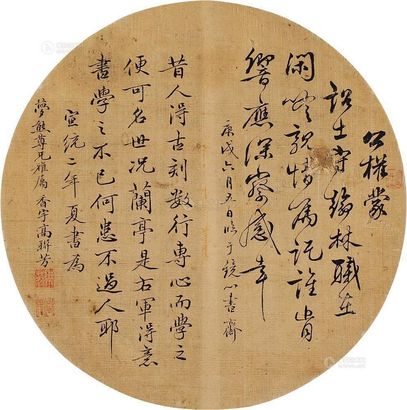 公權蒙
詔出守翰林職在
閑冷親情囑託誰肯
響應深察感幸
庚戌六月五日臨于鏡心書齋
昔人得古刻數行專心而學之
便可名世況蘭亭是右軍得意
書學之不已何患不過人耶
宣統二年夏書為
夢熊尊兄雅屬 香宇高聯芳